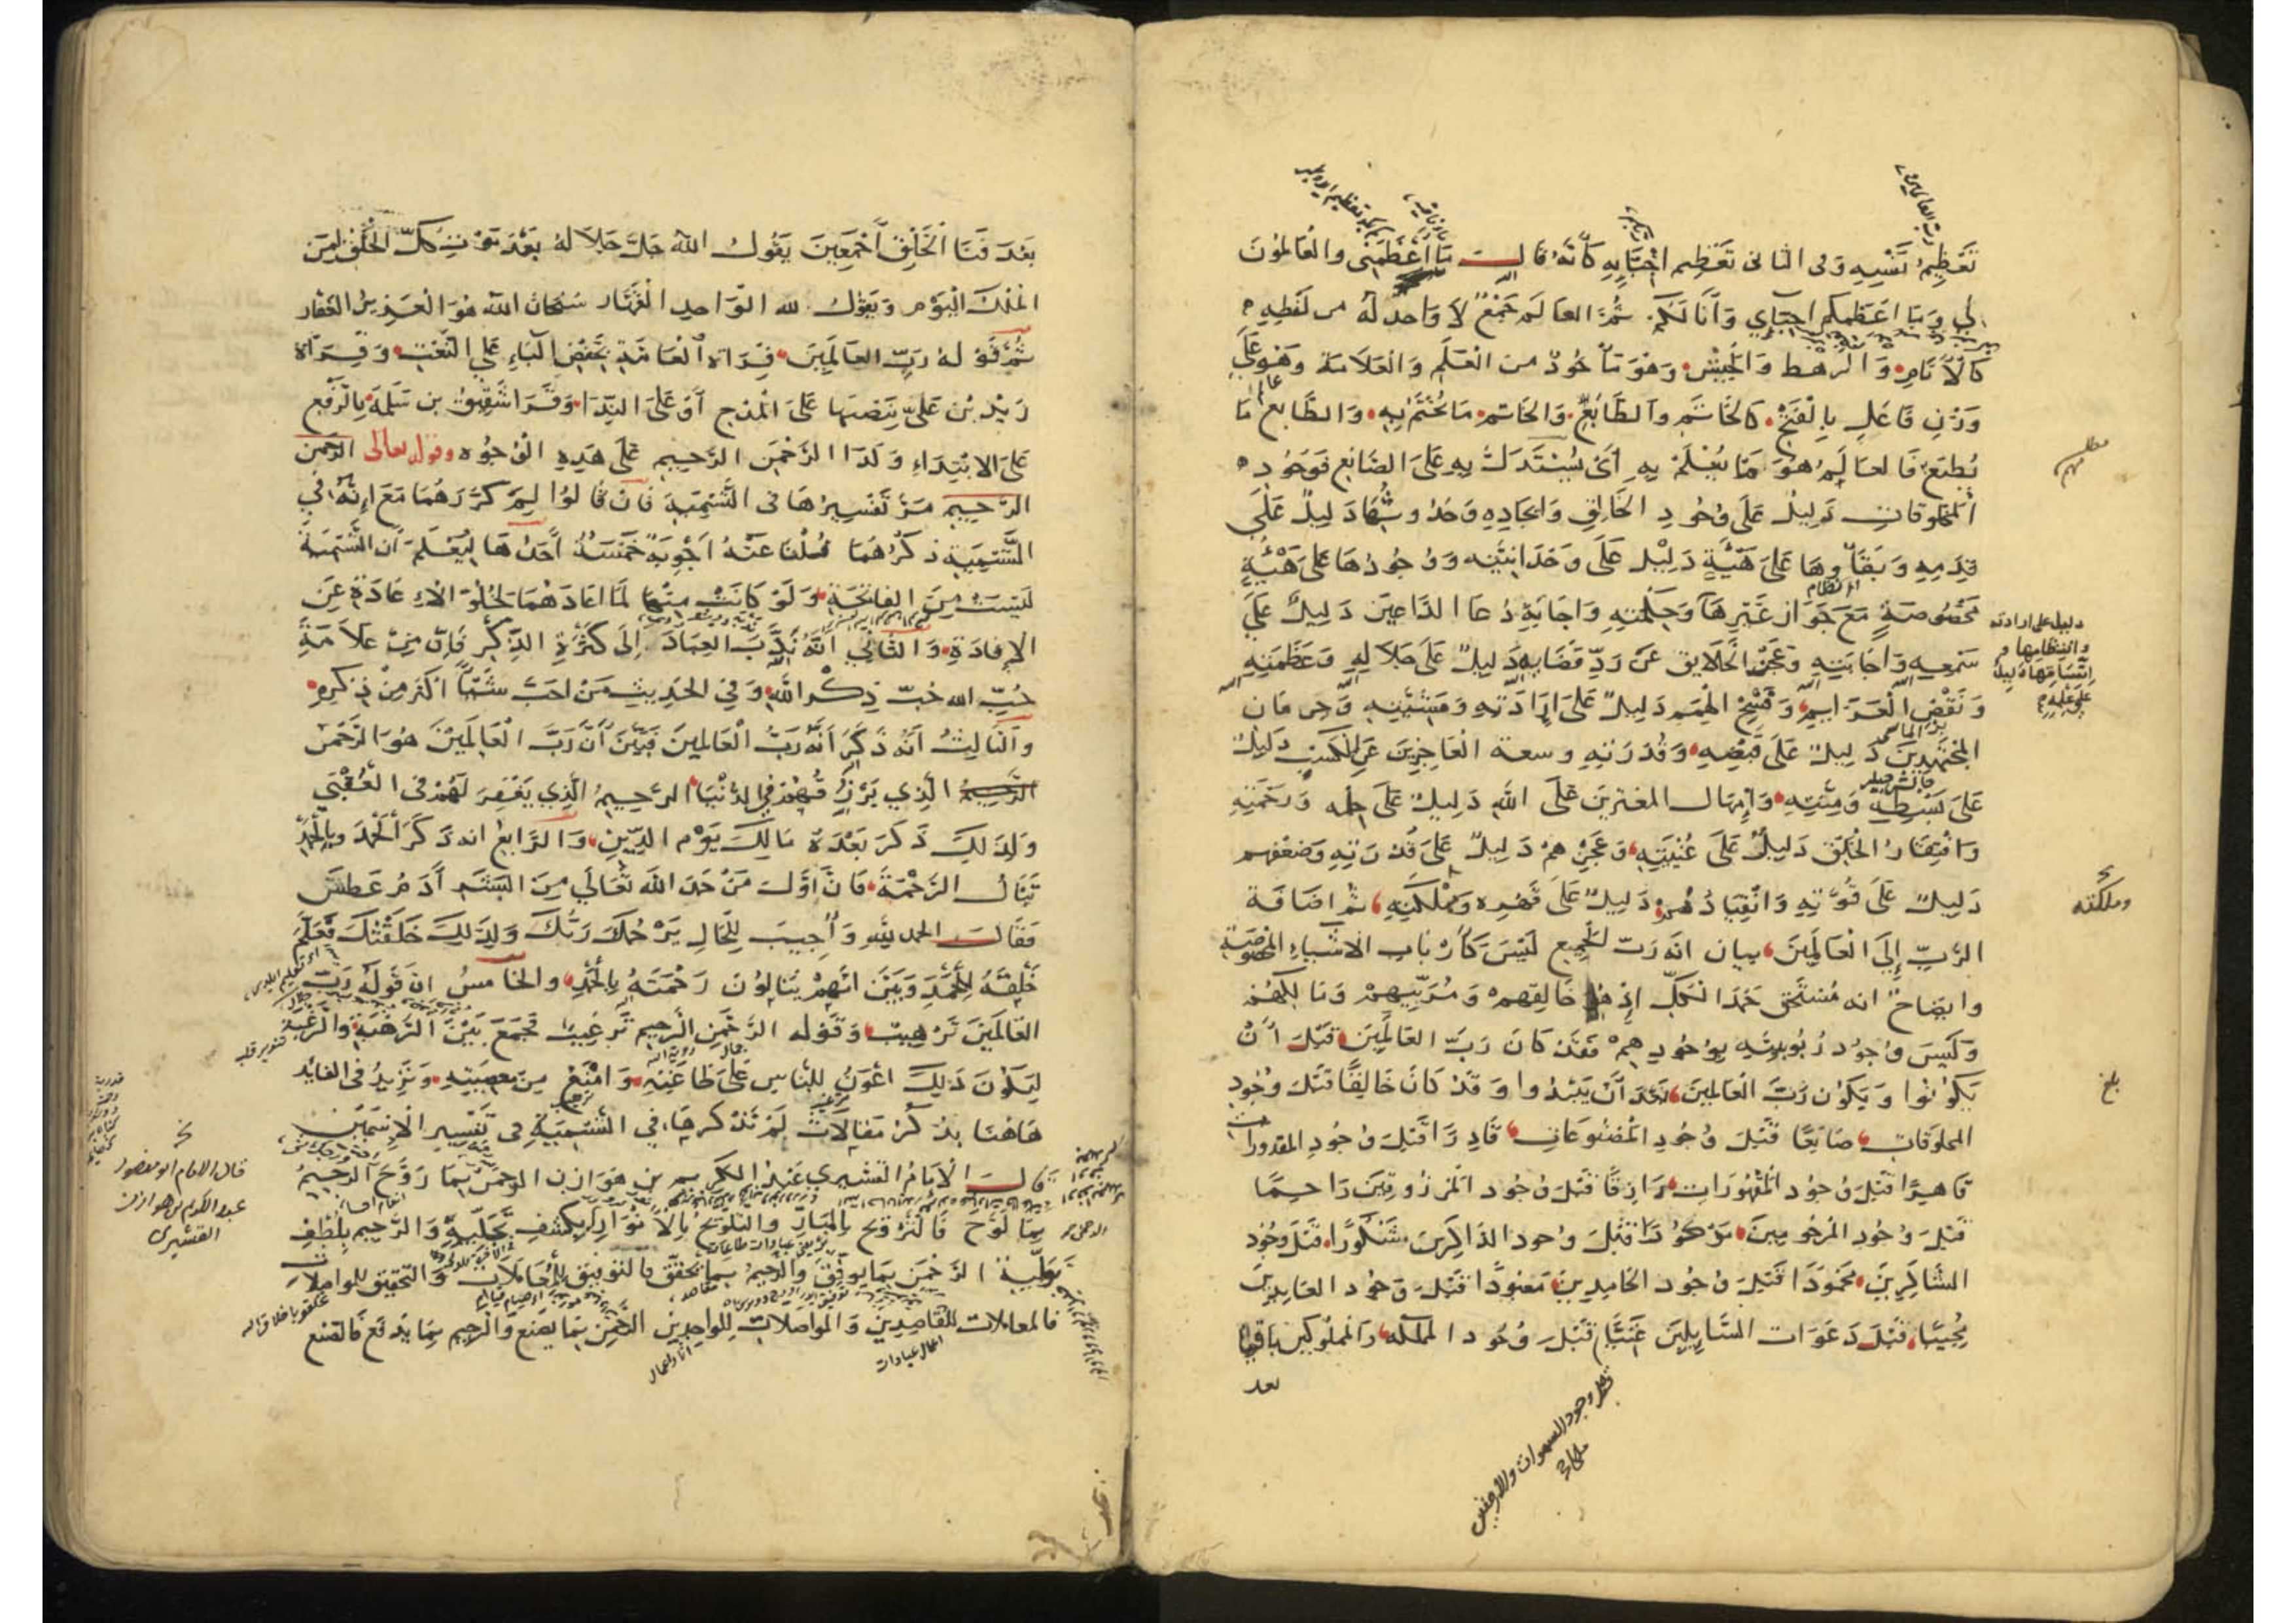 تَعْظِيمُ نَفْسِهِ وَفِى الثانى تَعْظِيم اَحِبَّائِهِ كَأَنَّهُ قَالَ مَا اَعْظَمَنِى والعَالمُونَ
لِي وَمَا اَعْظَمَكُم اَحِبَّايِ وَاَنَا لَكُمْ ثُمَّ العَالَم جَمْعٌ لاَ وَاحدَ لَهُ من لَفْظِهِ
كَالْاَنَامِ وَالرَّهْط وَالجَيْشِ وَهُوَ مَأْخُوذٌ من الْعَلَمِ وَالْعَلاَمَة وَهُوَ عَلَى
وَزْنِ فَاعَلٍ بِالْفَتْحِ كَالخَاتَمِ وَالطَّابَعِ وَالخَاتم مَا يُخْتَمُ بِهِ وَالطَّابَع مَا
يُطْبَعُ فَالعَالَمُ هُوَ مَا يُعْلَمُ بِهِ اَىْ يُسْتَدَلُّ بِهِ عَلَى الصَّانِعِ فَوُجُودُ
الْمَخْلوقاتِ دَلِيلٌ عَلَى وُجُودِ الخَالِقِ وَايجَادِهِ وَحُدُوثُهَا دَلِيلٌ عَلَى
قِدَمِهِ وَبَقَاؤُهَا عَلَى هَيْئَةٍ دَلِيْلٌ عَلَى وَحْدَانِيَّتِه وَوُجُودُهَا عَلَى هَيْئَةٍ
مَخْصُوصَةٍ مَعَ جَوَازِ غَيْرِهَا وَحِكْمَتِهِ وَاِجَابَةِ دُعَا الدَّاعِينَ دَلِيلٌ عَلَى
سَمْعِهِ وَاِجَابَتِهِ وَعَجْزُ الخَلاَيق عَنْ رَدِّ قَضَايِهِ دَلِيلٌ عَلَى جَلاَلِهِ وَعَظَمَتِهِ
وَنَقْضِ الْعَزَايمِ وَفَسْخِ الْهِمَمِ دَلِيلٌ عَلَى اِرَادَتِهِ وَمَشِيَّتِهِ وَحِرمَان
المُجْتَهِدِينَ دَلِيلٌ عَلَى قَبْضِهِ وَقُدْرَتِهِ وسعة الْعَاجِزِينَ عَنِ الْكَسْبِ دَلِيلٌ
عَلَى بَسْطِهِ وَمِنَّتِهِ وَاِمْهَال المفترين عَلَى اللّٰهِ دَلِيلٌ عَلَى حِلمه وَرَحْمَتِهِ
وَافْتِقَارُ الْخَلْقِ دَلِيلٌ عَلَى غُنْيَتِهِ وَعَجْزُهمْ دَلِيلٌ عَلَى قُدْرَتِهِ وَضعْفهم
دَلِيلٌ عَلَى قُوَّتِهِ وَانْقِيَادُهُمْ دَلِيلٌ عَلَى قَهْرِه وَمُلْكَتِهِ ثم اضَافَة
الرَّبِّ اِلَى الْعَالَمِينَ بيان انّهُ رَبّ الجميع لَيْسَ كَأَرْبَاب الاشياءِ المخصوصة
وايضَاحٌ انه مُسْتَحِق حَمْدَ الكلِّ اِذْ هُوَ خَالِقهمْ وَمُرَبِّيهِمْ وَمَالِكُهُمْ
وَلَيْسَ وُجُود رُبُوبِيَّتِهِ بِوُجُودِهِمْ فَقَدْ كَانَ رَبَّ العَالَمِينَ قَبْلَ اَنْ
يَكُونُوا وَيَكُون رَبَّ الْعَالَمِينَ بَعْدَ اَنْ يَبِيْدُوا وَقَدْ كَانَ خَالِقًا قَبْلَ وُجُودِ
المخلوقات صَانِعًا قَبْلَ وُجُودِ الْمَصْنُوعَاتِ قَادِرًا قَبْلَ وُجُودِ المقدورات
قَاهِرًا قَبْلَ وُجُود الْمَقْهُورَاتِ رَازِقًا قَبْلَ وُجُود الْمَرْزُوقِينَ رَاحِمًا
قَبْلَ وُجُود المَرْحُومِينَ مَذْكُورًا قَبْلَ وُجود الذاكِرِينَ مَشْكُورًا قَبْلَ وُجُود
الشَّاكِرِينَ مَحْمُودًا قَبْلَ وُجُود الحَامِدِينَ مَعْبُودًا قَبْلَ وُجُود العَابِدِينَ
مُجِيبًا قَبْلَ دَعَوَات السَّايِلِينَ غَنِيًّا قَبْلَ وُجُود المملكه وَالْمَمْلُوكِينَ بَاقيا
بعد
رب العالمين
دليل على ارادته
وانتظامها و
اتساقها دليل
على علمه
مطلب
مهم
ومملكته
بلغ
قبل وجود السموات والارضين
بَعْدَ فَنَا الْخَلْقِ اَجْمَعِينَ يَقُولُ اللّٰه جَلَّ جَلاَلهُ بَعْدَ مَوْتِ كلّ الخَلْقِ لِمَن
الْمُلْكُ الْيَوْم وَيَقُولُ لله الْوَاحِدِ الْقَهَّار سُبْحَان اللّٰه هُوَ الْعَزِيزُ الغفار
ثُمَّ قَوْلهُ رَبِّ العَالَمِينَ قِرَاة الْعَامَّةِ بِخَفْضِ الْبَاءِ عَلَى النَّعْتِ وَقِرَاة
زَيْد بْن عَلِيٍّ بِنَصْبِهَا عَلَى الْمَدْحِ اَوْ عَلَى النِّدَا وَقَرَا شَقِيقُ بن سَلَمَة بِالرَّفْعِ
عَلَى الابْتِدَاءِ وَكَذَا الرَّحْمَنِ الرَّحِيمِ عَلَى هَذِهِ الْوُجُوهِ وقوله تعالى الرحمن
الرَّحِيمِ مَرَّ تَفْسِيرُهَا فى التَّسْمِيَةِ فَاِنْ قَالُوا لِمَ كَرَّرَهُمَا مَعَ اِنَّهُ فِي
التَّسْمِيَةِ ذَكَرَهُمَا قُلْنَا عَنْهُ اَجْوِبَةٌ خَمْسَةٌ اَحَدُهَا لِيُعْلَمَ اَن التَّسْمِيَة
لَيْسَتْ مِنَ الفَاتحَةِ وَلَوْ كَانَتْ مِنْهَا لَمَا اعَادَهُمَا لِخُلُوّ الاِعَادَةِ عَنِ
الاِفَادَةِ وَالثَّانِي اَنَّهُ نَدَبَ العِبَادَ اِلَى كَثْرَةِ الذِّكْرِ فَاِنَّ مِنْ عَلاَمَةِ
حُبِّ الله حُبّ ذِكْر اللّٰهِ وَفِي الحَدِيثِ مَنْ اَحَبَّ شَيْئًا اَكْثَرَ مِنْ ذِكْرِهِ
وَالثَّالِثُ اَنّهُ ذَكَرَ اَنّهُ رَبُّ الْعَالَمِينَ فَبَيَّنَ اَنَّ رَبَّ الْعَالَمِينَ هُوَ الرَّحْمَن
الَّذِي يَرْزُقُهُمْ فِي الدُّنْيَا الرَّحِيمُ الَّذِي يَغْفِرُ لَهُمْ فى الْعُقْبَى
وَلِذَلِكَ ذَكَرَ بَعْدَهُ مَالِكِ يَوْم الدِّينِ وَالرَّابِعُ انه ذَكَرَ الْحَمْدَ وَبِالْحَمْدِ
تُنَالُ الرَّحْمَةُ فَاِنَّ اَوَّلَ مَنْ حَمِدَ اللّٰهَ تَعَالَى مِنَ البَشَرِ آدَم عَطَسَ
فَقَالَ الحمد لِلّٰهِ وَاُجِيبَ لِلْحَالِ يَرْحَمُكَ رَبُّكَ وَلِذَلِكَ خَلَقْتُكَ فَعَلَّمَ
خَلْقَهُ الحَمْدَ وَبَيَّنَ اَنَّهُمْ يَنَالُونَ رَحْمَتَهُ بِالْحَمْدِ وَالخَامسُ انَّ قَوْلَهُ رَبّ
العَالَمينَ تَرْهِيبٌ وَقَوْله الرَّحْمَنِ الرَّحِيم تَرْغِيبٌ فجَمَعَ بَيْنَ الرَّهْبَةِ وَالرَّغْبَة
لِيَكُونَ ذَلِكَ اَعْوَنُ لِلنَّاسِ عَلَى طَاعَتِهِ وَاَمْنَعُ مِنْ مَعْصِيَتِهِ وَنَزِيدُ فى الفَايْدَة
هَاهُنَا بِذِكْرِ مَقَالاَتٍ لَمْ نَذْكُرهَا فِي التَّسْمِيَةِ فى تَفْسِير الاِسْمَيْنِ
قَالَ الاِمَامُ القشَيري عَبْدُ الكَرِيم بن هَوَازِن الرحمن بِمَا رَوَّحَ الرحيمُ
بِمَا لَوَّحَ فَالتَّرْوِيحُ بِالْمَبَارّ وَالتَّلْوِيحُ بِالاَنْوَارِ يَكْشف تَجَلِّيهِ وَالرَّحِيم بِلُطْفِ
تَوَلِّيهِ الرَّحْمَن بِمَا يُوَفِّقُ وَالرَّحِيمُ بِمَا يُحَقِّقُ فَالتوفيق لِلْمُعَامَلاَت وَالتَّحْقِيق لِلْمواصلات
فالمعاملات لِلْقَاصِدِينِ وَالمواصلات لِلْوَاجِدِين الرَّحْمَن بِمَا يَصْنَع وَالرَّحِيم بِمَا يَدْفَع فَالصّنع
قال الامام ابو منصور
عبد الكريم بن هوازن
القشيرى